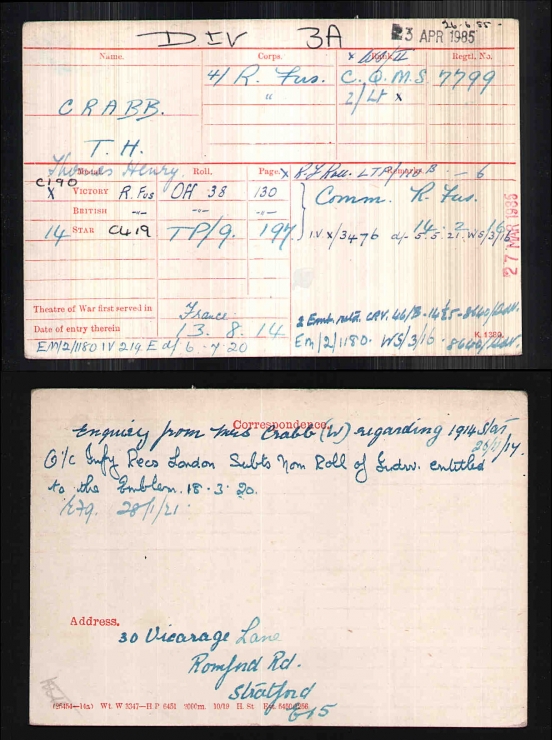 26.6.85.
DIV 3A
23 APR 1985
Name. Corps. Rank. Regtl. No.
4/ R. Fus. C.Q.M.S. 7799
" 2/Lt x
CRABB.
T. H.
Thomas Henry
Medal. Roll. Page. Remarks.
C190
X VICTORY R. Fus OH 38 130
BRITISH -"- -"- -"-
14 STAR CL419 TP/9. 197
Comm. R. Fus.
14. 2. 16
IV X/3476 d/- 5.5.21. WS/3/16
27 MAR 1985
Theatre of War first served in France.
Date of entry therein 13. 8. 14
K. 1380.
EM/2/1180 IV 219. E d/ 6 - 7 - 20
EM/2/1180. WS/3/16 - 8640/Adv.
Correspondence.
Enquiry from Mrs Crabb (W) regarding 1914 Star
O i/c Infy Recs London Subts Nom Roll of Indiv. entitled
to the Emblem. 18. 3. 20.
28/1/21.
Address.
30 Vicarage Lane
Romford Rd.
Stratford
E15
Wt. W 3347—H P 6451 10/19 H. St